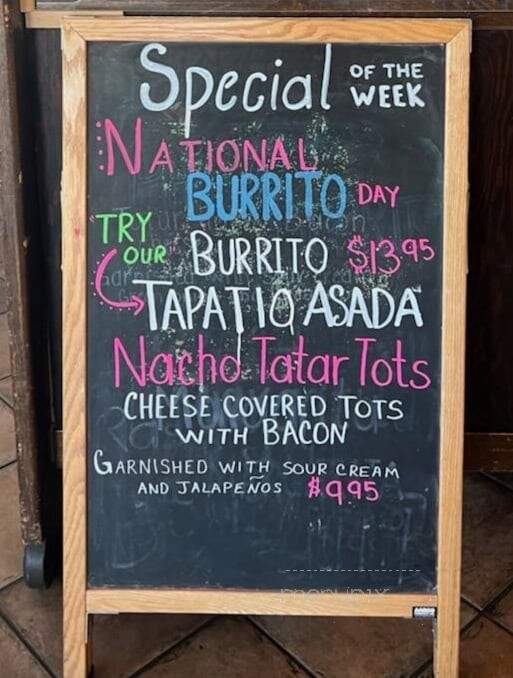 Special OF THE WEEK
NATIONAL
BURRITO DAY
TRY OUR BURRITO $13.95
TAPATIO ASADA
Nacho Tatar Tots
CHEESE COVERED TOTS
WITH BACON
GARNISHED WITH SOUR CREAM
AND JALAPEÑOS $9.95
menupix